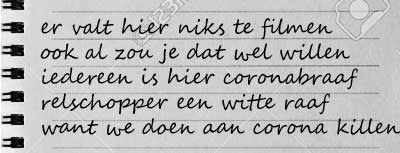 er valt hier niks te filmen
ook al zou je dat wel willen
iedereen is hier coronabraaf
relschopper een witte raaf
want we doen aan corona killen